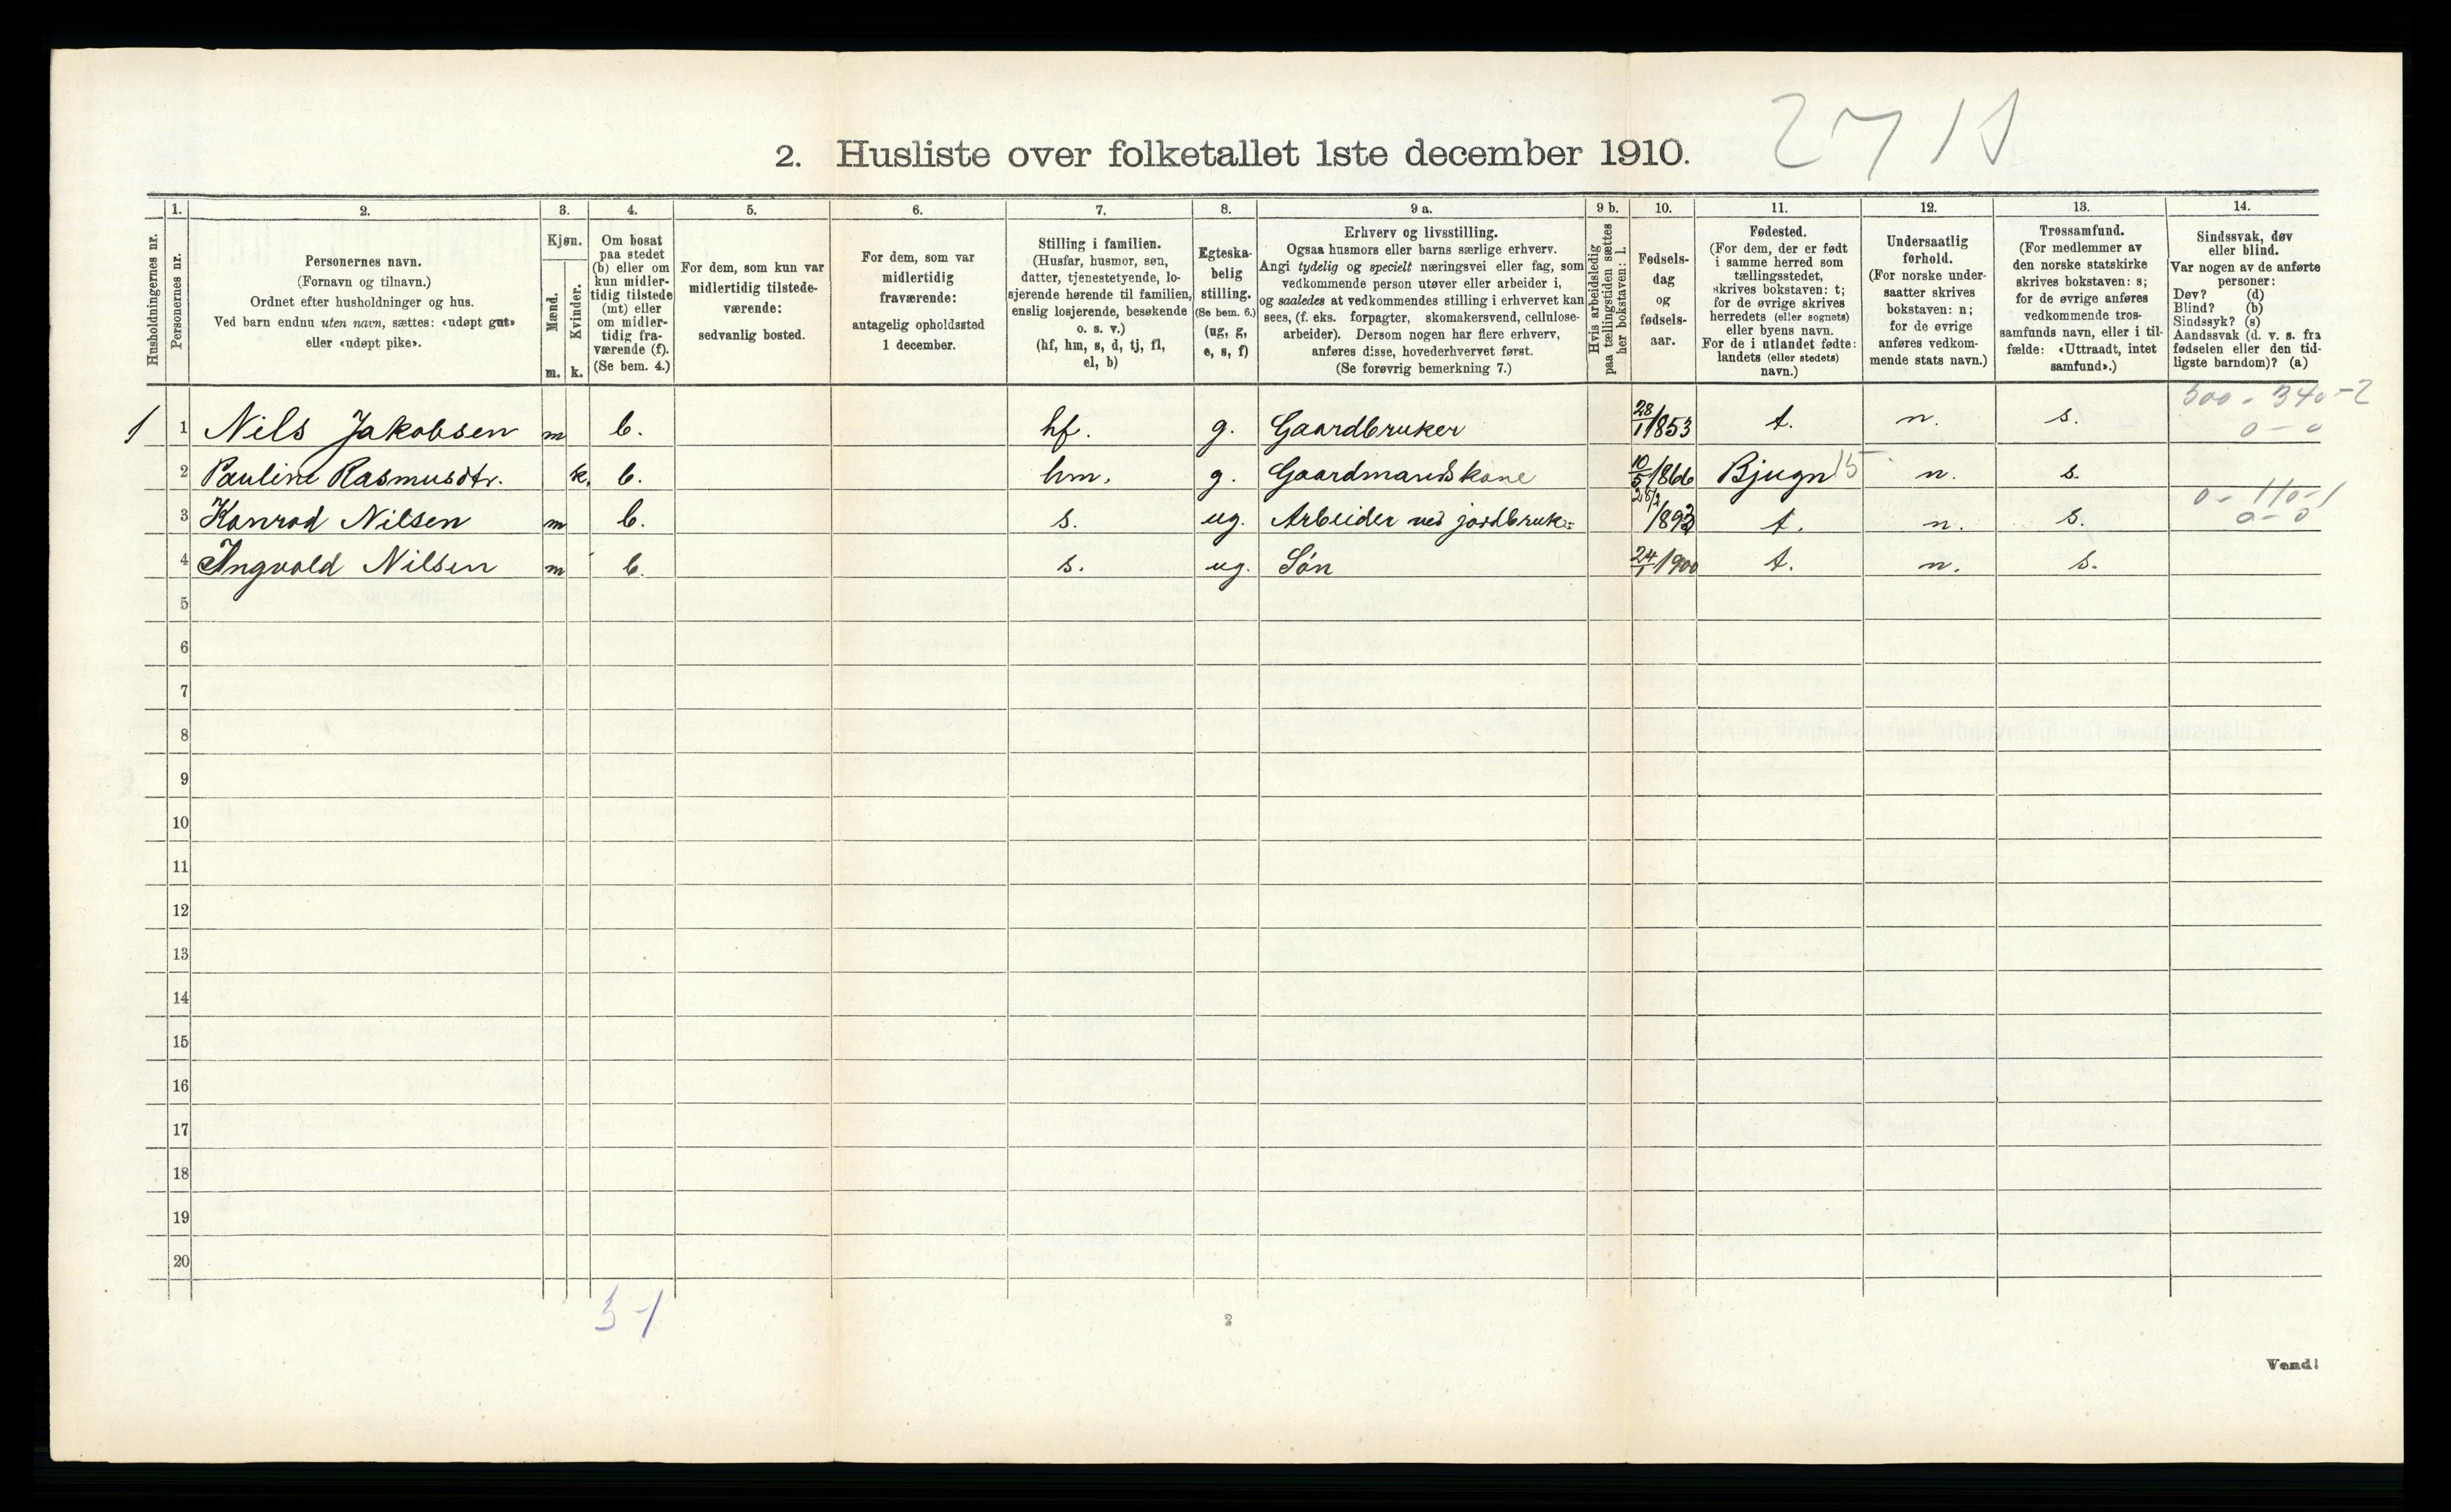 2. Husliste over folketallet 1ste december 1910.
1. 2. 3. 4. 5. 6. 7. 8. 9 a. 9 b. 10. 11. 12. 13. 14.
Husholdningernes nr.
Personernes nr.
Personernes navn.
(Fornavn og tilnavn.)
Ordnet efter husholdninger og hus.
Ved barn endnu uten navn, sættes: «udøpt gut»
eller «udøpt pike».
Kjøn.
Mænd. Kvinder.
m. k.
Om bosat
paa stedet
(b) eller om
kun midler-
tidig tilstede
(mt) eller
om midler-
tidig fra-
værende (f).
(Se bem. 4.)
For dem, som kun var
midlertidig tilstede-
værende:
sedvanlig bosted.
For dem, som var
midlertidig
fraværende:
antagelig opholdssted
1 december.
Stilling i familien.
(Husfar, husmor, søn,
datter, tjenestetyende, lo-
sjerende hørende til familien,
enslig losjerende, besøkende
o. s. v.)
(hf, hm, s, d, tj, fl,
el, b)
Egteska-
belig
stilling.
(Se bem. 6.)
(ug, g,
e, s, f)
Erhverv og livsstilling.
Ogsaa husmors eller barns særlige erhverv.
Angi tydelig og specielt næringsvei eller fag, som
vedkommende person utøver eller arbeider i,
og saaledes at vedkommendes stilling i erhvervet kan
sees, (f. eks. forpagter, skomakersvend, cellulose-
arbeider). Dersom nogen har flere erhverv,
anføres disse, hovederhvervet først.
(Se forøvrig bemerkning 7.)
Hvis arbeidsledig
paa tællingstiden sættes
her bokstaven: l.
Fødsels-
dag
og
fødsels-
aar.
Fødested.
(For dem, der er født
i samme herred som
tællingsstedet,
skrives bokstaven: t;
for de øvrige skrives
herredets (eller sognets)
eller byens navn.
For de i utlandet fødte:
landets (eller stedets)
navn.)
Undersaatlig
forhold.
(For norske under-
saatter skrives
bokstaven: n;
for de øvrige
anføres vedkom-
mende stats navn.)
Trossamfund.
(For medlemmer av
den norske statskirke
skrives bokstaven: s;
for de øvrige anføres
vedkommende tros-
samfunds navn, eller i til-
fælde: «Uttraadt, intet
samfund».)
Sindssvak, døv
eller blind.
Var nogen av de anførte
personer:
Døv? (d)
Blind? (b)
Sindssyk? (s)
Aandssvak (d. v. s. fra
fødselen eller den tid-
ligste barndom)? (a)
500 - 340 - 2
1 1 Nils Jakobsen m b. hf. g. Gaardbruker 28/1 1853 t. n. s. 0 - 0
2 Pauline Rasmusdtr. k. b. hm. g. Gaardmandskone 10/5 1866 Bjugn 15 n. s.
0 - 110 - 1
3 Konrad Nilsen m b. s. ug. Arbeider ved jordbruk 28/2 1893 t. n. s. 0 - 0
4 Ingvald Nilsen m b. s. ug. Søn 24/1 1900 t. n. s.
5
6
7
8
9
10
11
12
13
14
15
16
17
18
19
20
3-1
2
Vend!